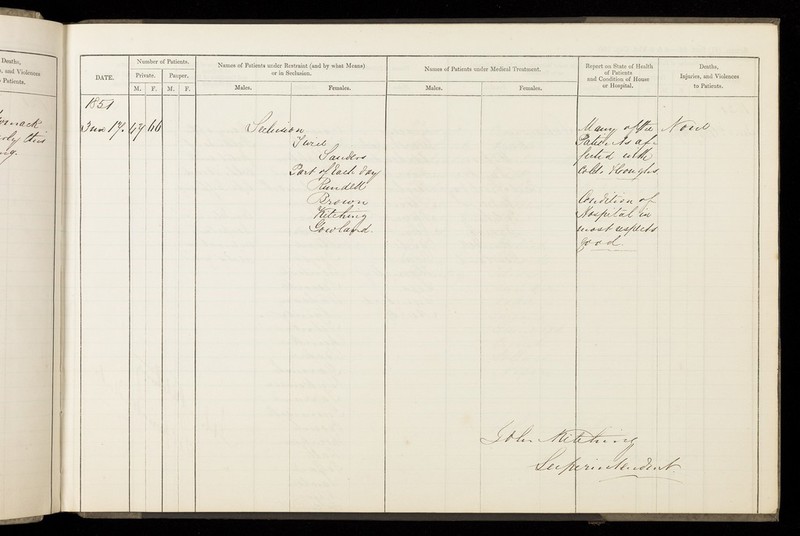 Deaths,
, and Violences
Patients.
ning.
DATE.
Number of Patients.
Private. Pauper.
M. F. M. F.
Names of Patients under Restraint (and by what Means)
or in Seclusion.
Males. Females.
Names of Patients under Medical Treatment.
Males. Females.
Report on State of Health
of Patients
and Condition of House
or Hospital.
Deaths,
Injuries, and Violences
to Patients.
1851
47 66
Seclusion
Sanders
Part of Each day
Rundell
Brown
Kitching
Gowland
Many of the
Patients af-
fected with
colds & Coughs
Condition of
Hospital in
most respects
good
None
John Kitching
Superintendent